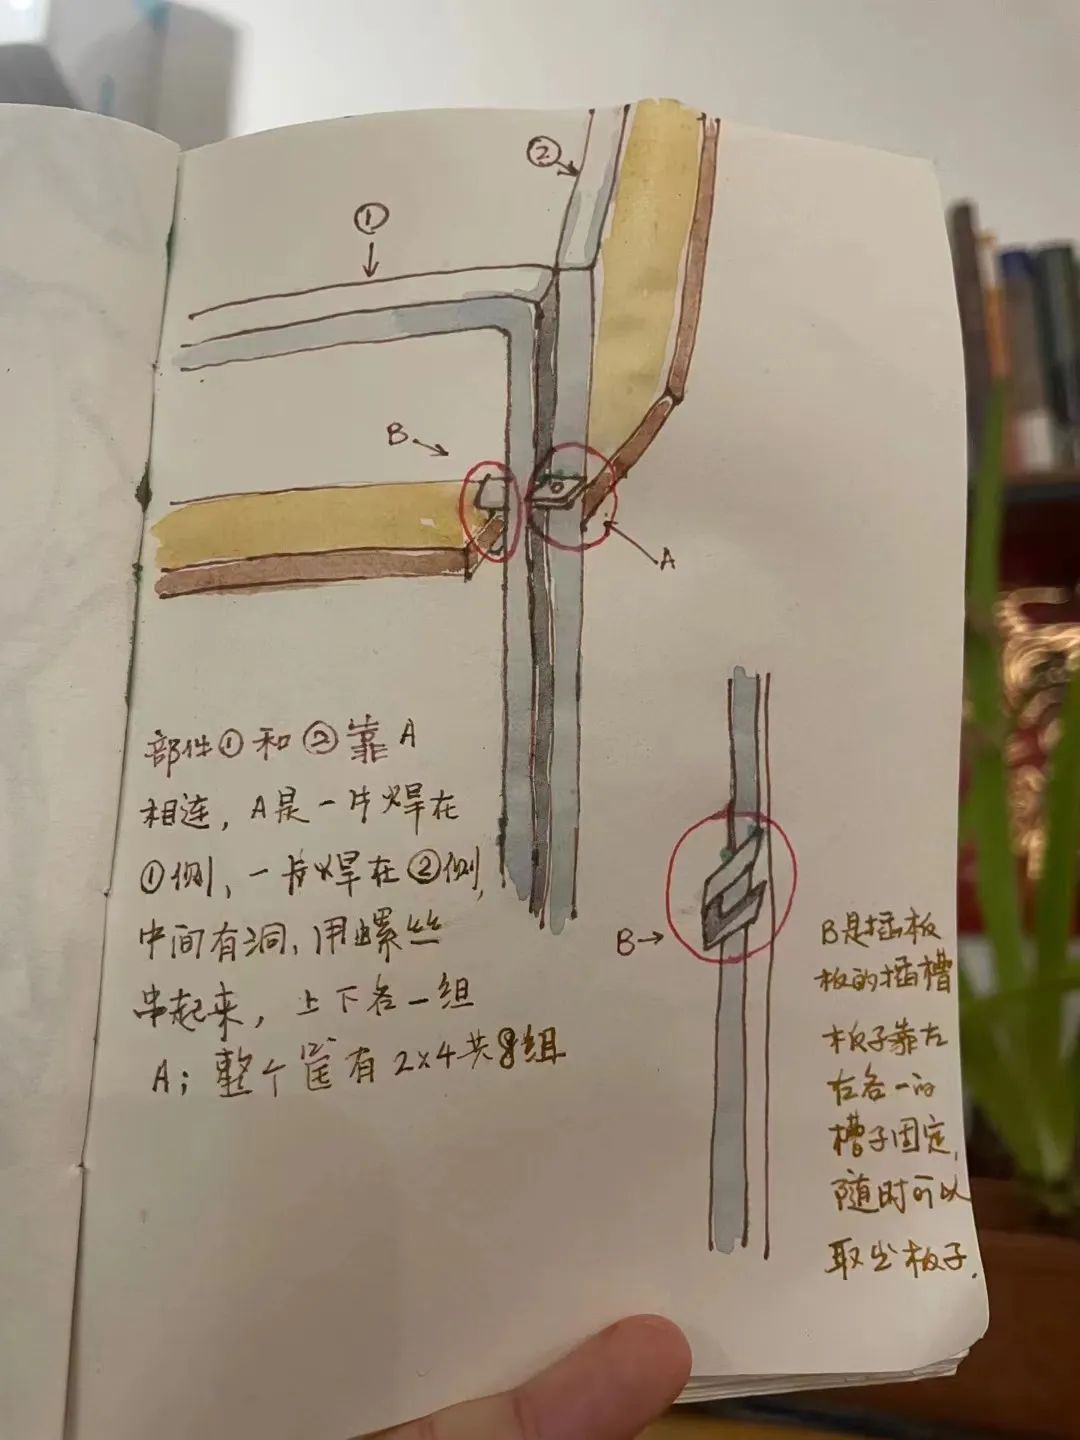 ②
①
B
A
部件①和②靠A
相连，A是一片焊在
①侧，一片焊在②侧，
中间有洞，用螺丝
串起来，上下各一组
A；整个筐有2×4共8组
B
B是插板
板的插槽
板子靠左
右各一的
槽子固定，
随时可以
取出板子.